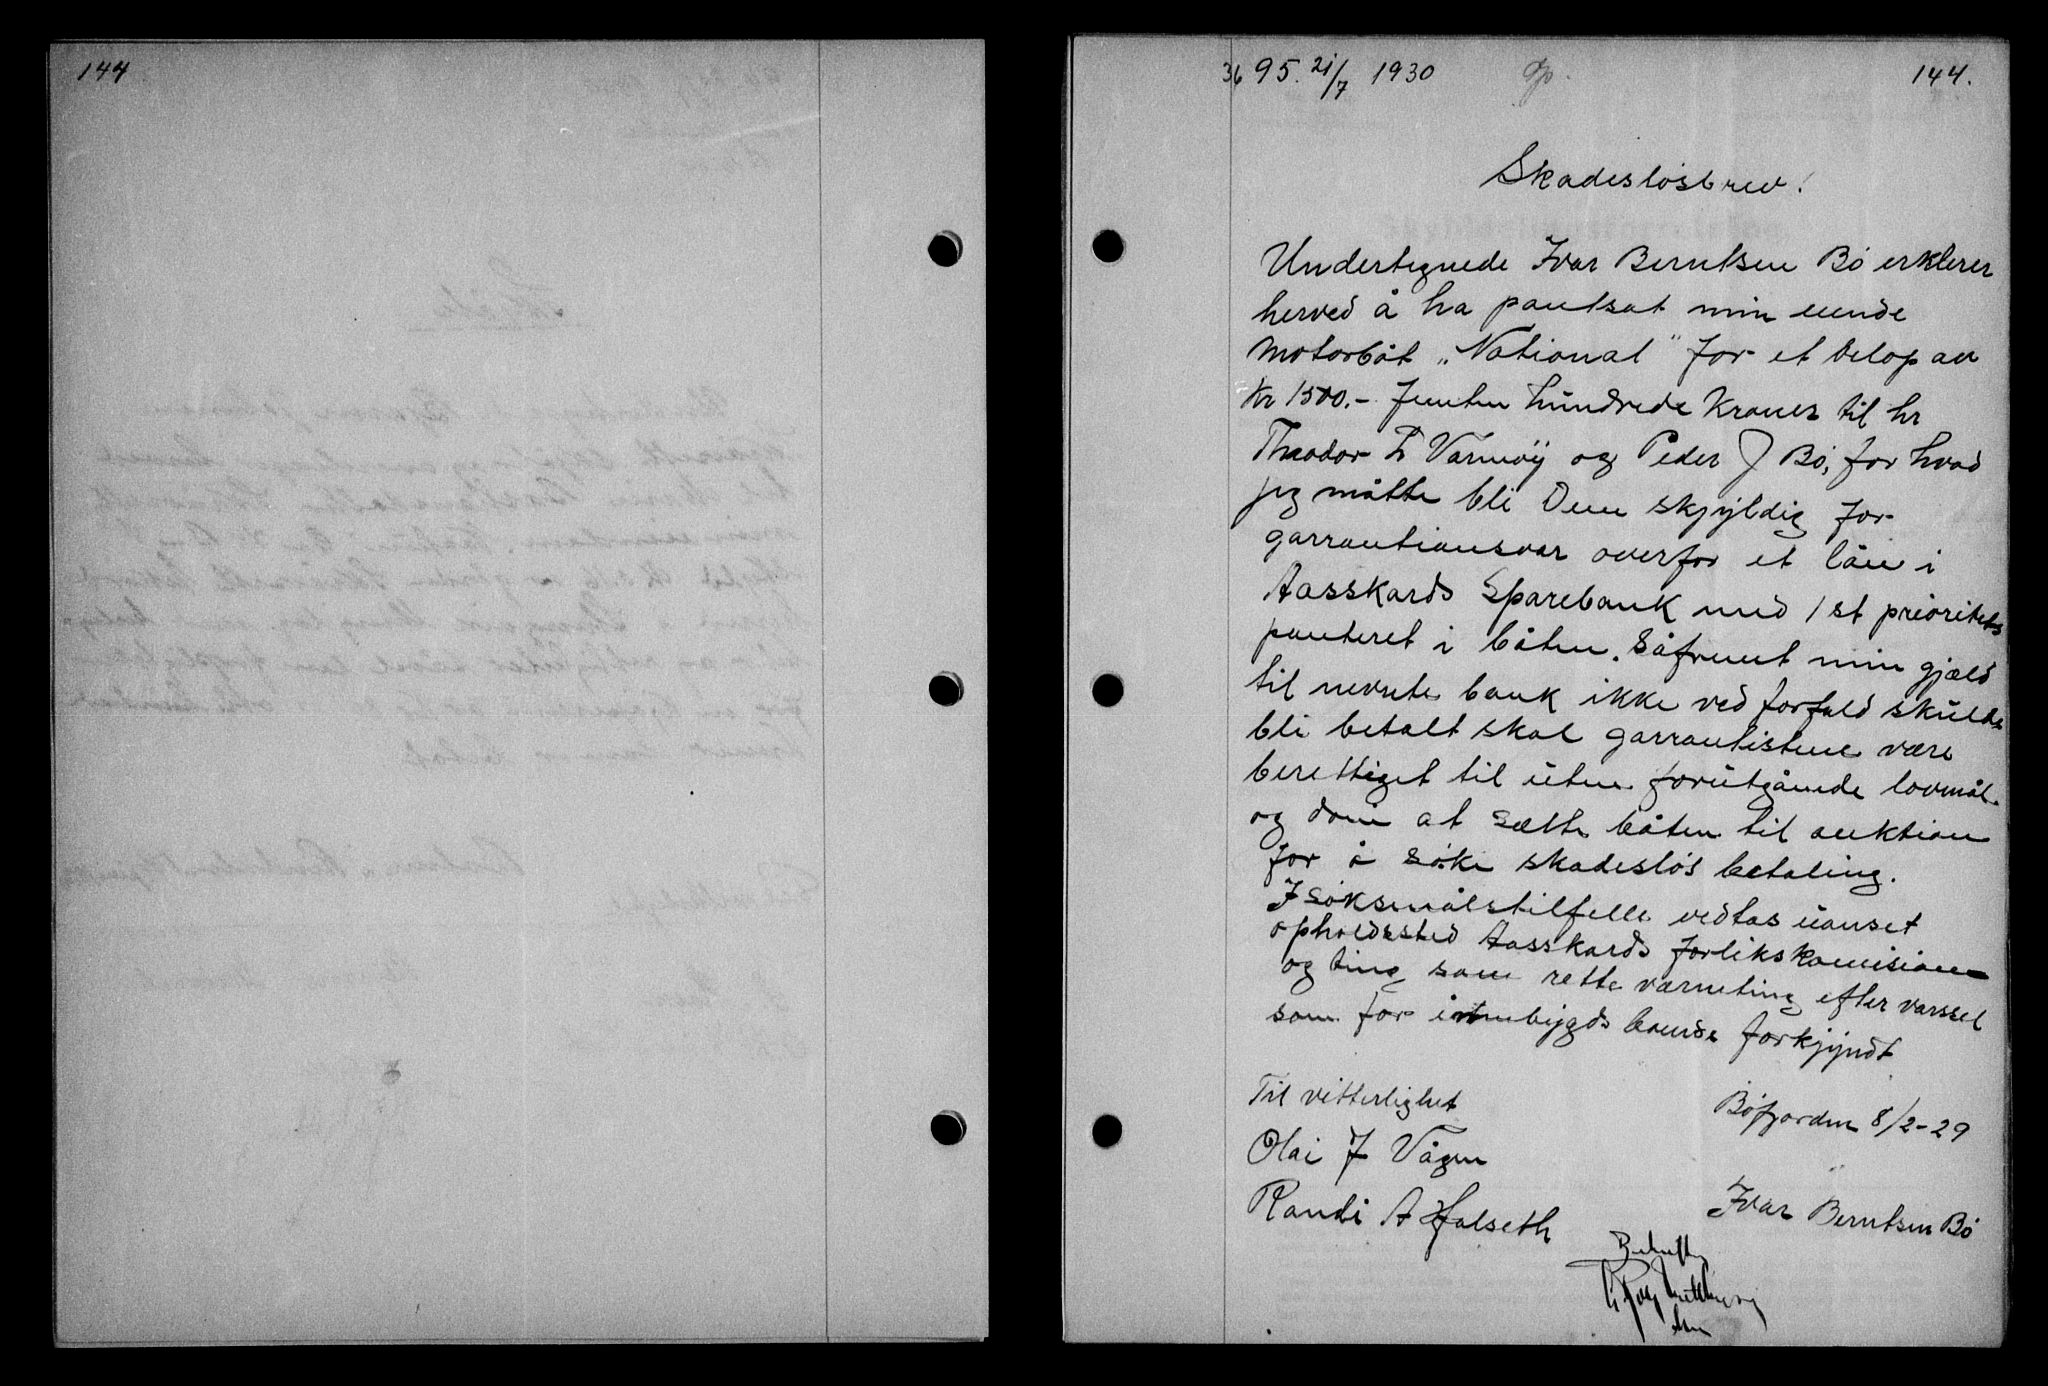 144
3695. 21/7 1930
144.
Skadesløsbrev!
Undertegnede Ivar Berntsen Bø erklerer
herved å ha pantsat min eiende
motorbåt „National" for et beløp av
Kr 1500.- femten hundrede kroner til hr
Theodor L Varmøy og Peder J Bø, for hvad
jeg måtte bli Dem skjyldig for
garrantiansvar overfor et lån i
Aasskards Sparebank med 1st prioritets
panteret i båten. Såfremt min gjæld
til nevnte bank ikke ved forfald skulde
bli betalt skal garrantistene være
berettiget til uten forutgående lovmål
og dom at sætte båten til auktion
for å søke skadesløs betaling.
I søksmålstilfelle vedtas uanset
opholdssted Aasskards forlikskomision
og ting som rette værneting efter varssel
som for innenbygds boende forkjyndt
Til vitterlighet
Bøfjorden 8/2-29
Olai J Vågen
Randi A Halseth
Ivar Berntsen Bø
Bekreftes